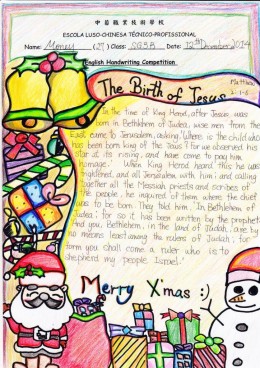 中葡職業技術學校
ESCOLA LUSO-CHINESA TÉCNICO-PROFISSIONAL
Name: Money (27) Class: SG3B Date: 12th December 2014
English Handwriting Competition
The Birth of Jesus
Matthew
2:1-6
In the time of king Herod, after Jesus was
born in Bethlehem of Judea, wise men from the
East came to Jerusalem, asking, Where is the child who
has been born king of the Jews? For we observed his
star at its rising, and have come to pay him
homage." When king Herod heard this, he was
frightened, and all Jerusalem with him; and calling
together all the Messiah priests and scribes of
the people, he inquired of them where the chief
was to be born. They told him, "In Bethlehem of
Judea; for so it has been written by the prophet:
And you, Bethlehem, in the land of Judah, are by
no means least among the rulers of Judah; for
from you shall come a ruler who is to
shepherd my people Israel."
Merry X'mas :)